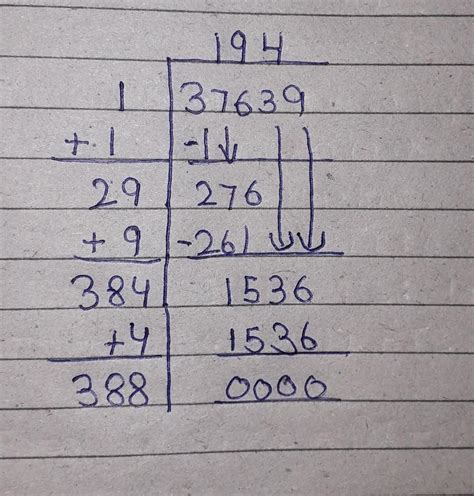 194
1 37639
+1 -1
29 276
+9 -261
384 1536
+4 1536
388 0000